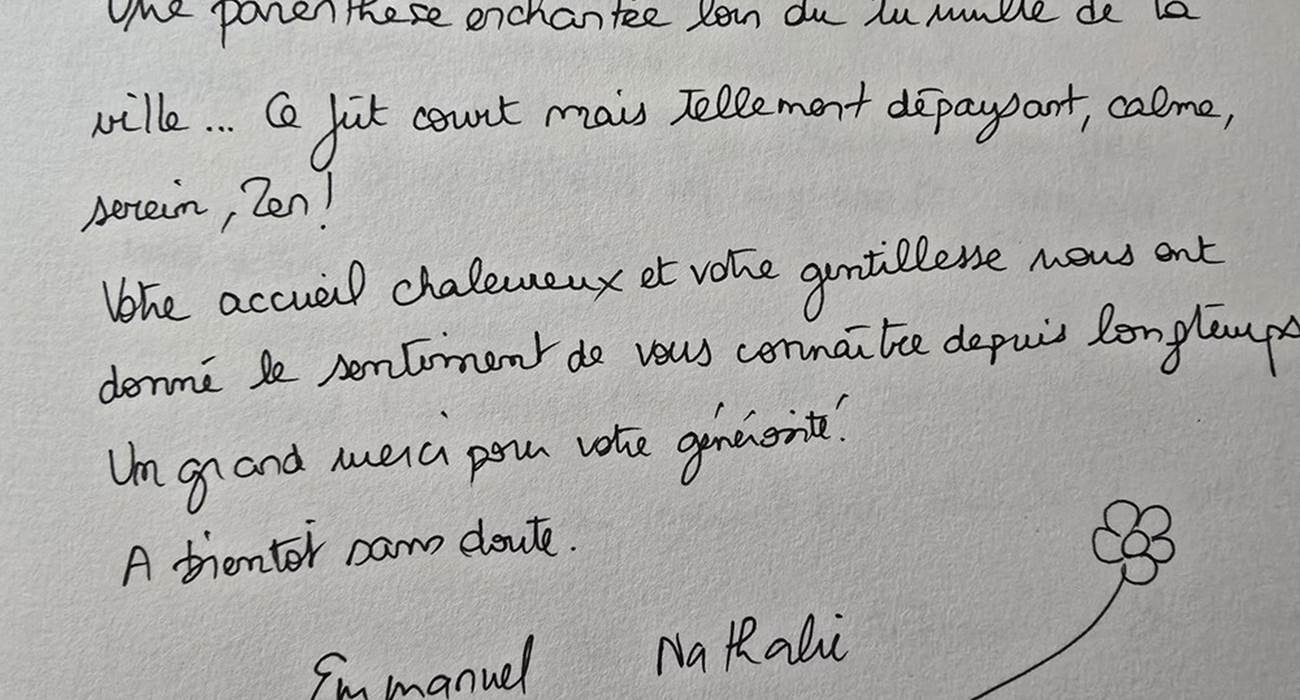 Une parenthèse enchantée loin du tumulte de la
ville... Ce fût court mais tellement dépaysant, calme,
serein, Zen!
Votre accueil chaleureux et votre gentillesse nous ont
donné le sentiment de vous connaître depuis longtemps
Un grand merci pour votre générosité!
A bientôt sans doute.
Emmanuel Nathalie